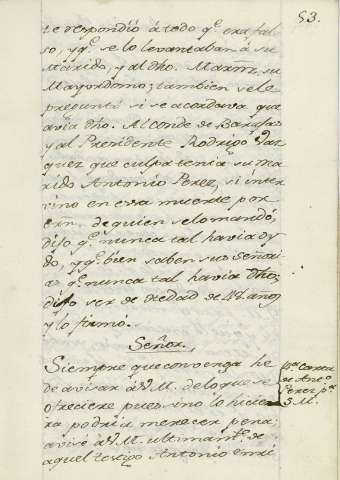 53.
te respondió á todo q.e era fal-
so, y q.e se lo levantaban á su
Marido, y al dho. Marñz, su
Mayordomo; tambien sele
preguntó si se acordava que
avia dho. Al Conde de Barajas
y al Presidente Rodrigo Vaz-
quez que culpa tenia su ma-
rido Antonio Perez, si inter
vino en esa muerte por
orñ. de quien se lo mandó;
dijo q.e nunca tal havia oy
do, y q.e bien saben sus Señori-
as q.e nunca tal havia dho;
dijo ser de hedad de 48. años,
y lo firmó.
Señor.
Siempre que convenga he
de avisar á V. M. de lo que se
ofreciere pues sino lo hicie-
ra podria merecer pena;
avisé á V. M. ultimam.te de
aquel testigo Antonio Enri
Carta
de Ant.o
Perez p.a
S. M.